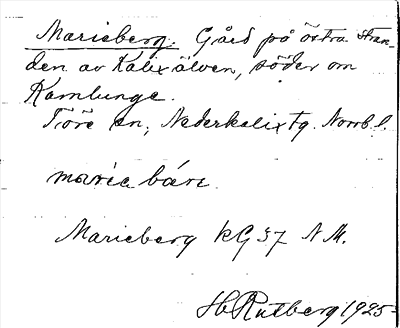 Marieberg. Gård på östra stran-
den av Kalixälven, söder om
Kamlunge.
Töre sn, Nederkalix tg. Norrb. l.
maria bärj
Marieberg KG 37 N.M.
H Rutberg 1925